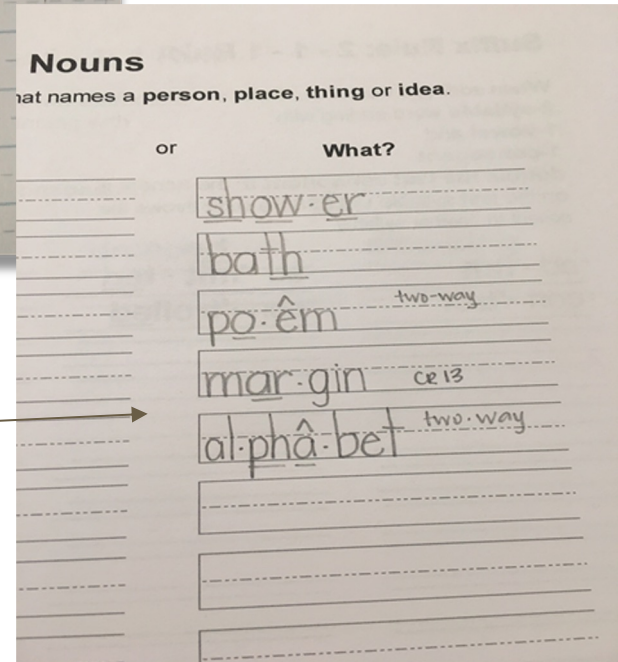 Nouns
hat names a person, place, thing or idea.
or What?
show·er
bath
po·êm two-way
mar·gin CR 13
al·phâ·bet two·way